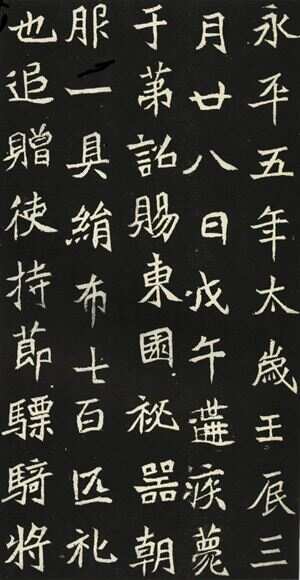 永平五年太歲壬辰三
月廿八日戊午遘疾薨
于苐詔賜東國祕器朝
服一具絹布七百匹礼
也追贈使持節驃騎將